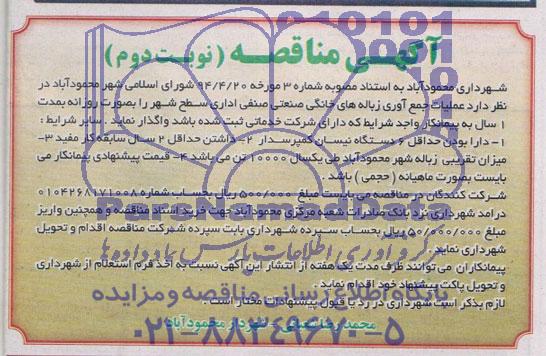 آگهی مناقصه (نوبت دوم)
شهرداری محمودآباد به استناد مصوبه شماره ۳ مورخه ۹۴/۴/۲۰ شورای اسلامی شهر محمودآباد در
نظر دارد عملیات جمع آوری زباله های خانگی صنعتی صنفی اداری سطح شهر را بصورت روزانه بمدت
۱ سال به پیمانکار واجد شرایط که دارای شرکت خدماتی ثبت شده باشد واگذار نماید . سایر شرایط :
۱- دارا بودن حداقل ۶ دستگاه نیسان کمپرسدار ۲- داشتن حداقل ۲ سال سابقه کار مفید ۳-
میزان تقریبی زباله شهر محمودآباد طی یکسال ۱۰۰۰۰ تن می باشد ۴- قیمت پیشنهادی پیمانکار می
بایست بصورت ماهیانه ( حجمی ) باشد .
شرکت کنندگان در مناقصه می بایست مبلغ ۵۰۰/۰۰۰ ریال بحساب شماره ۰۱۰۴۲۶۸۱۷۱۰۰۸
درآمد شهرداری نزد بانک صادرات شعبه مرکزی محمودآباد جهت خرید اسناد مناقصه و همچنین واریز
مبلغ ۵۰/۰۰۰/۰۰۰ ریال بحساب سپرده شهرداری بابت سپرده شرکت مناقصه اقدام و تحویل
شهرداری نماید .
پیمانکاران می توانند ظرف مدت یک هفته از انتشار این آگهی نسبت به اخذ فرم استعلام از شهرداری
و تحویل پاکت پیشنهاد خود اقدام نماید .
لازم بذکر است شهرداری در رد یا قبول پیشنهادات مختار است .
شهردار محمودآباد
ParsNamadData
گردآوری اطلاعات پارس نماد داده ها
پایگاه اطلاع رسانی مناقصه و مزایده
۰۲۱-۸۸۳۴۹۶۷۰-۵